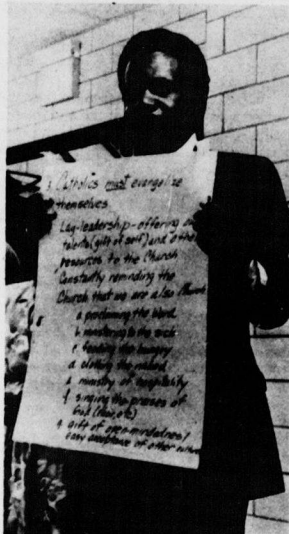 3. Catholics must evangelize
themselves
Lay-leadership-offering
talents (gift of self) and other
resources to the Church
Constantly reminding the
Church that we are also Church
a. proclaiming the Word
b. ministering to the sick
c. feeding the hungry
d. clothing the naked
e. ministry of hospitality
f. singing the praises of
God (choir, etc)
gift of open-mindedness/
easy acceptance of other